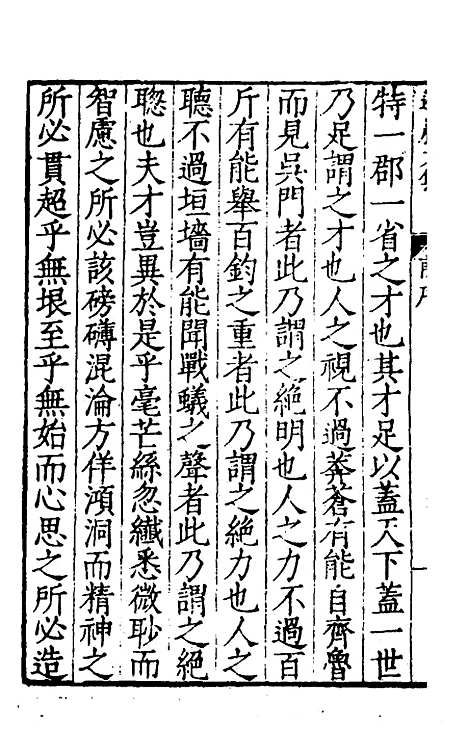 特一郡一省之才也其才足以蓋天下蓋一世
乃足謂之才也人之視不過莽蒼有能自齊魯
而見吳門者此乃謂之絕明也人之力不過百
斤有能舉百鈞之重者此乃謂之絕力也人之
聽不過垣墻有能聞戰蟻之聲者此乃謂之絕
聰也夫才豈異於是乎毫芒絲忽纖悉微眇而
智慮之所必該磅礴混淪方佯澒洞而精神之
所必貫超乎無垠至乎無始而心思之所必造